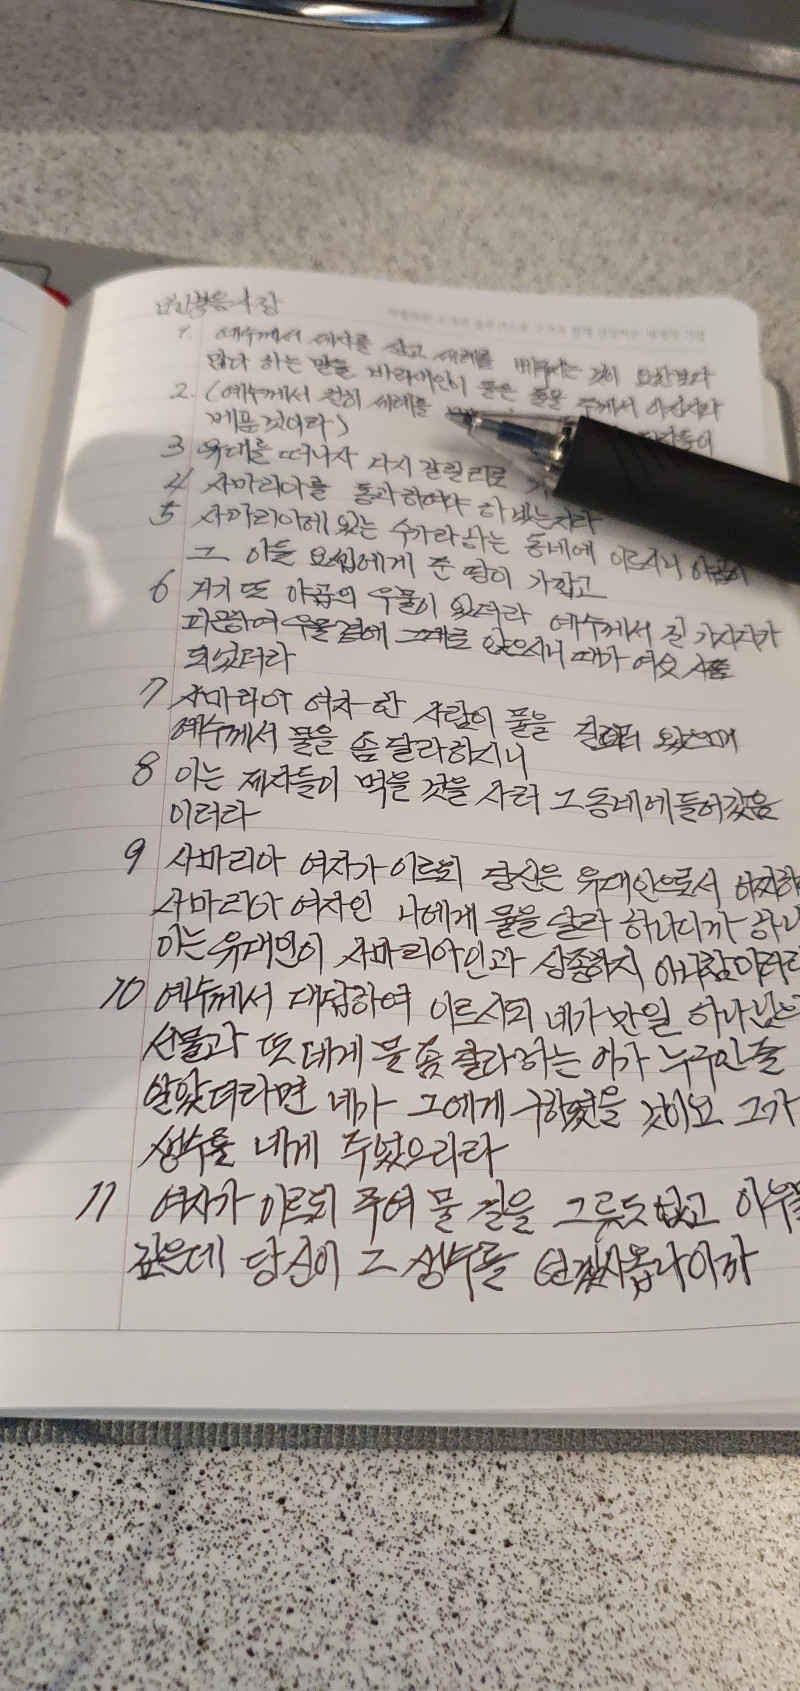 요한복음 4장
1. 예수께서 제자를 삼고 세례를 베푸시는 것이 요한보다
많다 하는 말을 바리새인이 들은 줄을 주께서 아신지라
2. (예수께서 친히 세례를
베푼 것이라)
3 유대를 떠나사 다시 갈릴리로
4 사마리아를 통과하여야 하겠는지라
5 사마리아에 있는 수가라 하는 동네에 이르시니 야곱이
그 아들 요셉에게 준 땅이 가깝고
6 거기 또 야곱의 우물이 있더라 예수께서 길 가시다가
피곤하여 우물 곁에 그대로 앉으시니 때가 여섯 시쯤
되었더라
7 사마리아 여자 한 사람이 물을 길으러 왔으매
예수께서 물을 좀 달라 하시니
8 이는 제자들이 먹을 것을 사러 그 동네에 들어갔음
이러라
9 사마리아 여자가 이르되 당신은 유대인으로서 어찌하
사마리아 여자인 나에게 물을 달라 하나이까 하니
이는 유대인이 사마리아인과 상종하지 아니함이러라
10 예수께서 대답하여 이르시되 네가 만일 하나님의
선물과 또 네게 물 좀 달라 하는 이가 누구인 줄
알았더라면 네가 그에게 구하였을 것이요 그가
생수를 네게 주었으리라
11 여자가 이르되 주여 물 길을 그릇도 없고 이 우물
깊은데 당신이 그 생수를 얻겠사옵나이까